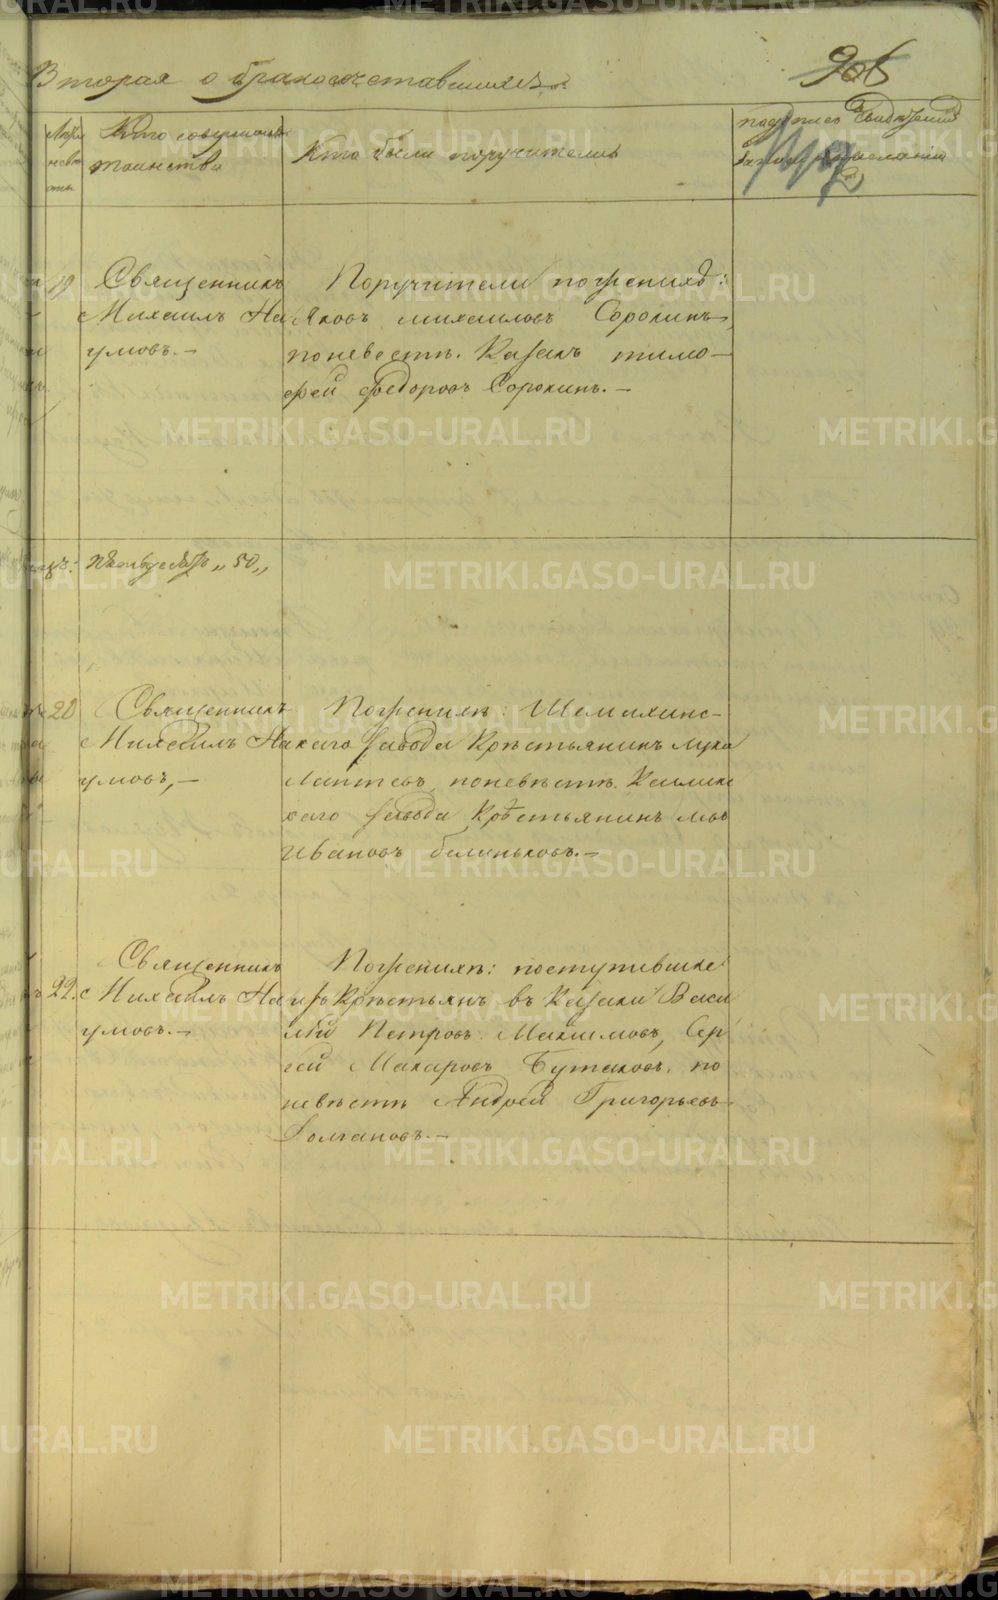 Вторая о бракосочетавшихся.
Лѣта невѣсты
Кто совершалъ таинство
Кто были поручители
подпись Свидѣтелей
19 Священникъ Михаилъ Наумовъ.—
Поручители по женихѣ:
Яковъ михаиловъ Сорокинъ,
по невестѣ. Казакъ тимо—
фей федоровъ Сорокинъ.—
пятьдесятъ „50„
20 Священникъ Михаилъ Наумовъ,—
По женихѣ: Шемахинс—
каго завода Крѣстьянинъ лука
Лаптевъ, по невѣстѣ. Каслинс
каго завода Крѣстьянинъ
Ивановъ беленьковъ.—
22. Священникъ Михаилъ Наумовъ.—
По женихѣ: поступившие
изъ Крѣстьянъ въ Казаки Васи
лѣй Петровъ Макшмовъ, Сер
гей Макаровъ Бутаковъ, по
невѣстѣ Андрей Григорьевъ
Долгановъ.—
METRIKI.GASO-URAL.RU